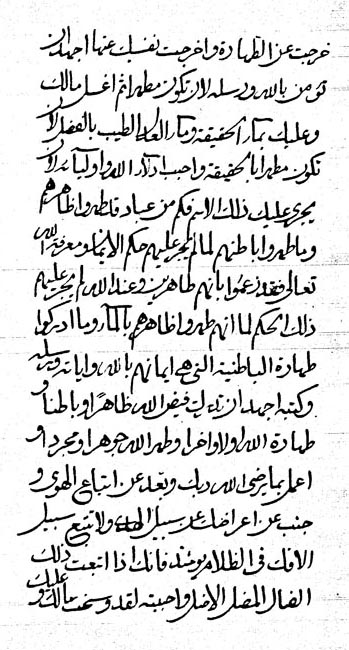 خرجت عن الطهارة واخرجت نفسك عنها اجهد ان
تؤمن بالله ورسله لان تكون مطهرا ثم اغسل مالك
وعليك بماء الحقيقة وماء العلم الطيب بالفضل لان
تكون مطهرا بالحقيقة واحبب آلاء الله واوليائه لان
يجري عليك ذلك الا فكم من عباد قد طهروا ظاهرهم
وما طهروا باطنهم لما لم يجر عليهم حكم الايمان ومعرفة الله
تعالى زعموا بانهم طاهرين وعند الله لم يجر عليهم
ذلك الحكم لما انهم طهروا ظاهرهم بالماء وما ادركوا
طهارة الباطنية التي هي ايمانهم بالله واياته ورسله
وكتبه اجهد ان فيض الله ظاهرا وباطنا و
طهارة الله اولا واخرا وطهر الله جوهرا ومجردا و
اعمل بما يرضى الله ربك وبعد عن اتباع الهوى و
جنب عن اعراضك عن سبيل ولا تتبع سبيل
الافك في الظلام يومئذ فانك اذا اتبعت ذلك
الضال المضل الاضل واحببته لقد وسخت مالك وعليك